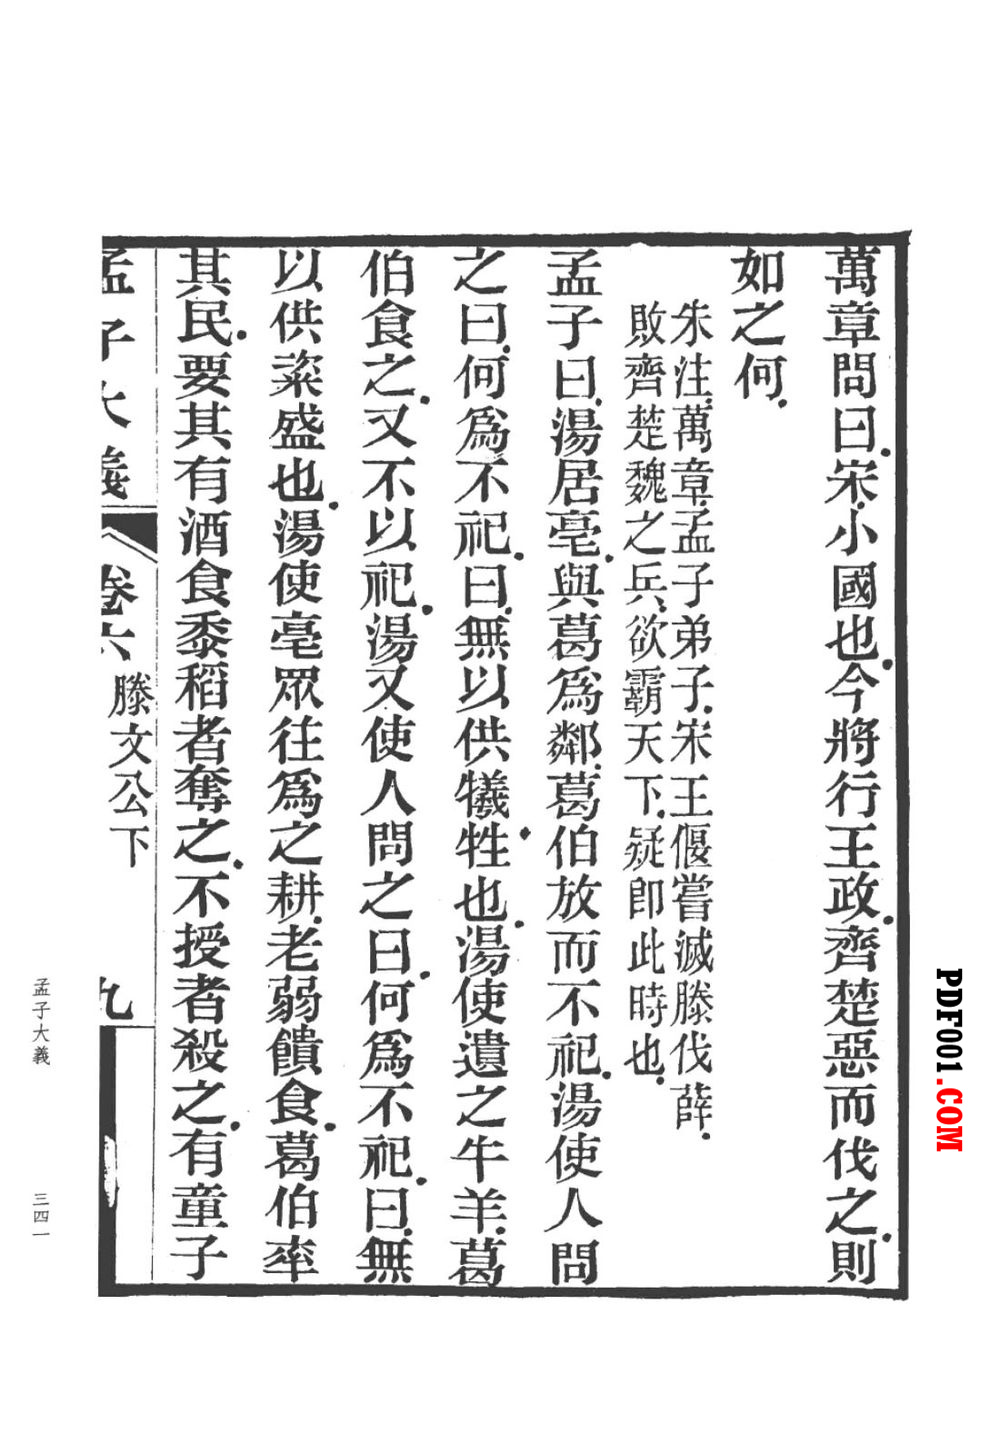 萬章問曰.宋.小國也.今將行王政.齊楚惡而伐之.則
如之何.
朱注.萬章.孟子弟子.宋王偃嘗滅滕伐薛.
敗齊楚魏之兵.欲霸天下.疑即此時也.
孟子曰.湯居亳.與葛爲鄰.葛伯放而不祀.湯使人問
之曰.何爲不祀.曰.無以供犧牲也.湯使遺之牛羊.葛
伯食之.又不以祀.湯又使人問之曰.何爲不祀.曰.無
以供粢盛也.湯使亳眾往爲之耕.老弱饋食.葛伯率
其民.要其有酒食黍稻者奪之.不授者殺之.有童子
孟子大義
卷六
滕文公下
九
孟子大義
三四一
PDF001.COM